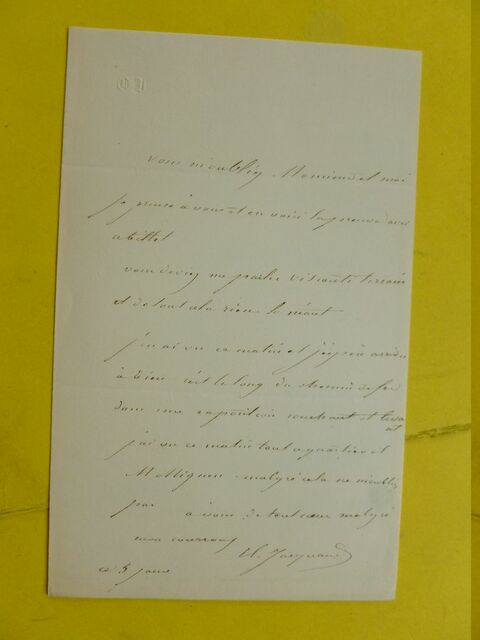 vous m'oubliez Monsieur et moi
je pense à vous et en voici la preuve avec
ce billet
vous deviez me parler visite terrain
et de tout cela rien le néant
j'en ai vu ce matin et j'
à rien c'est le long du chemin de fer
dans une couchant et
j'ai vu ce matin tout a quartier et
M Mignon malgré cela ne m'oubliez
pas à vous de tout cœur malgré
mon courroux
Ch. Jacquand
ce 3 janv